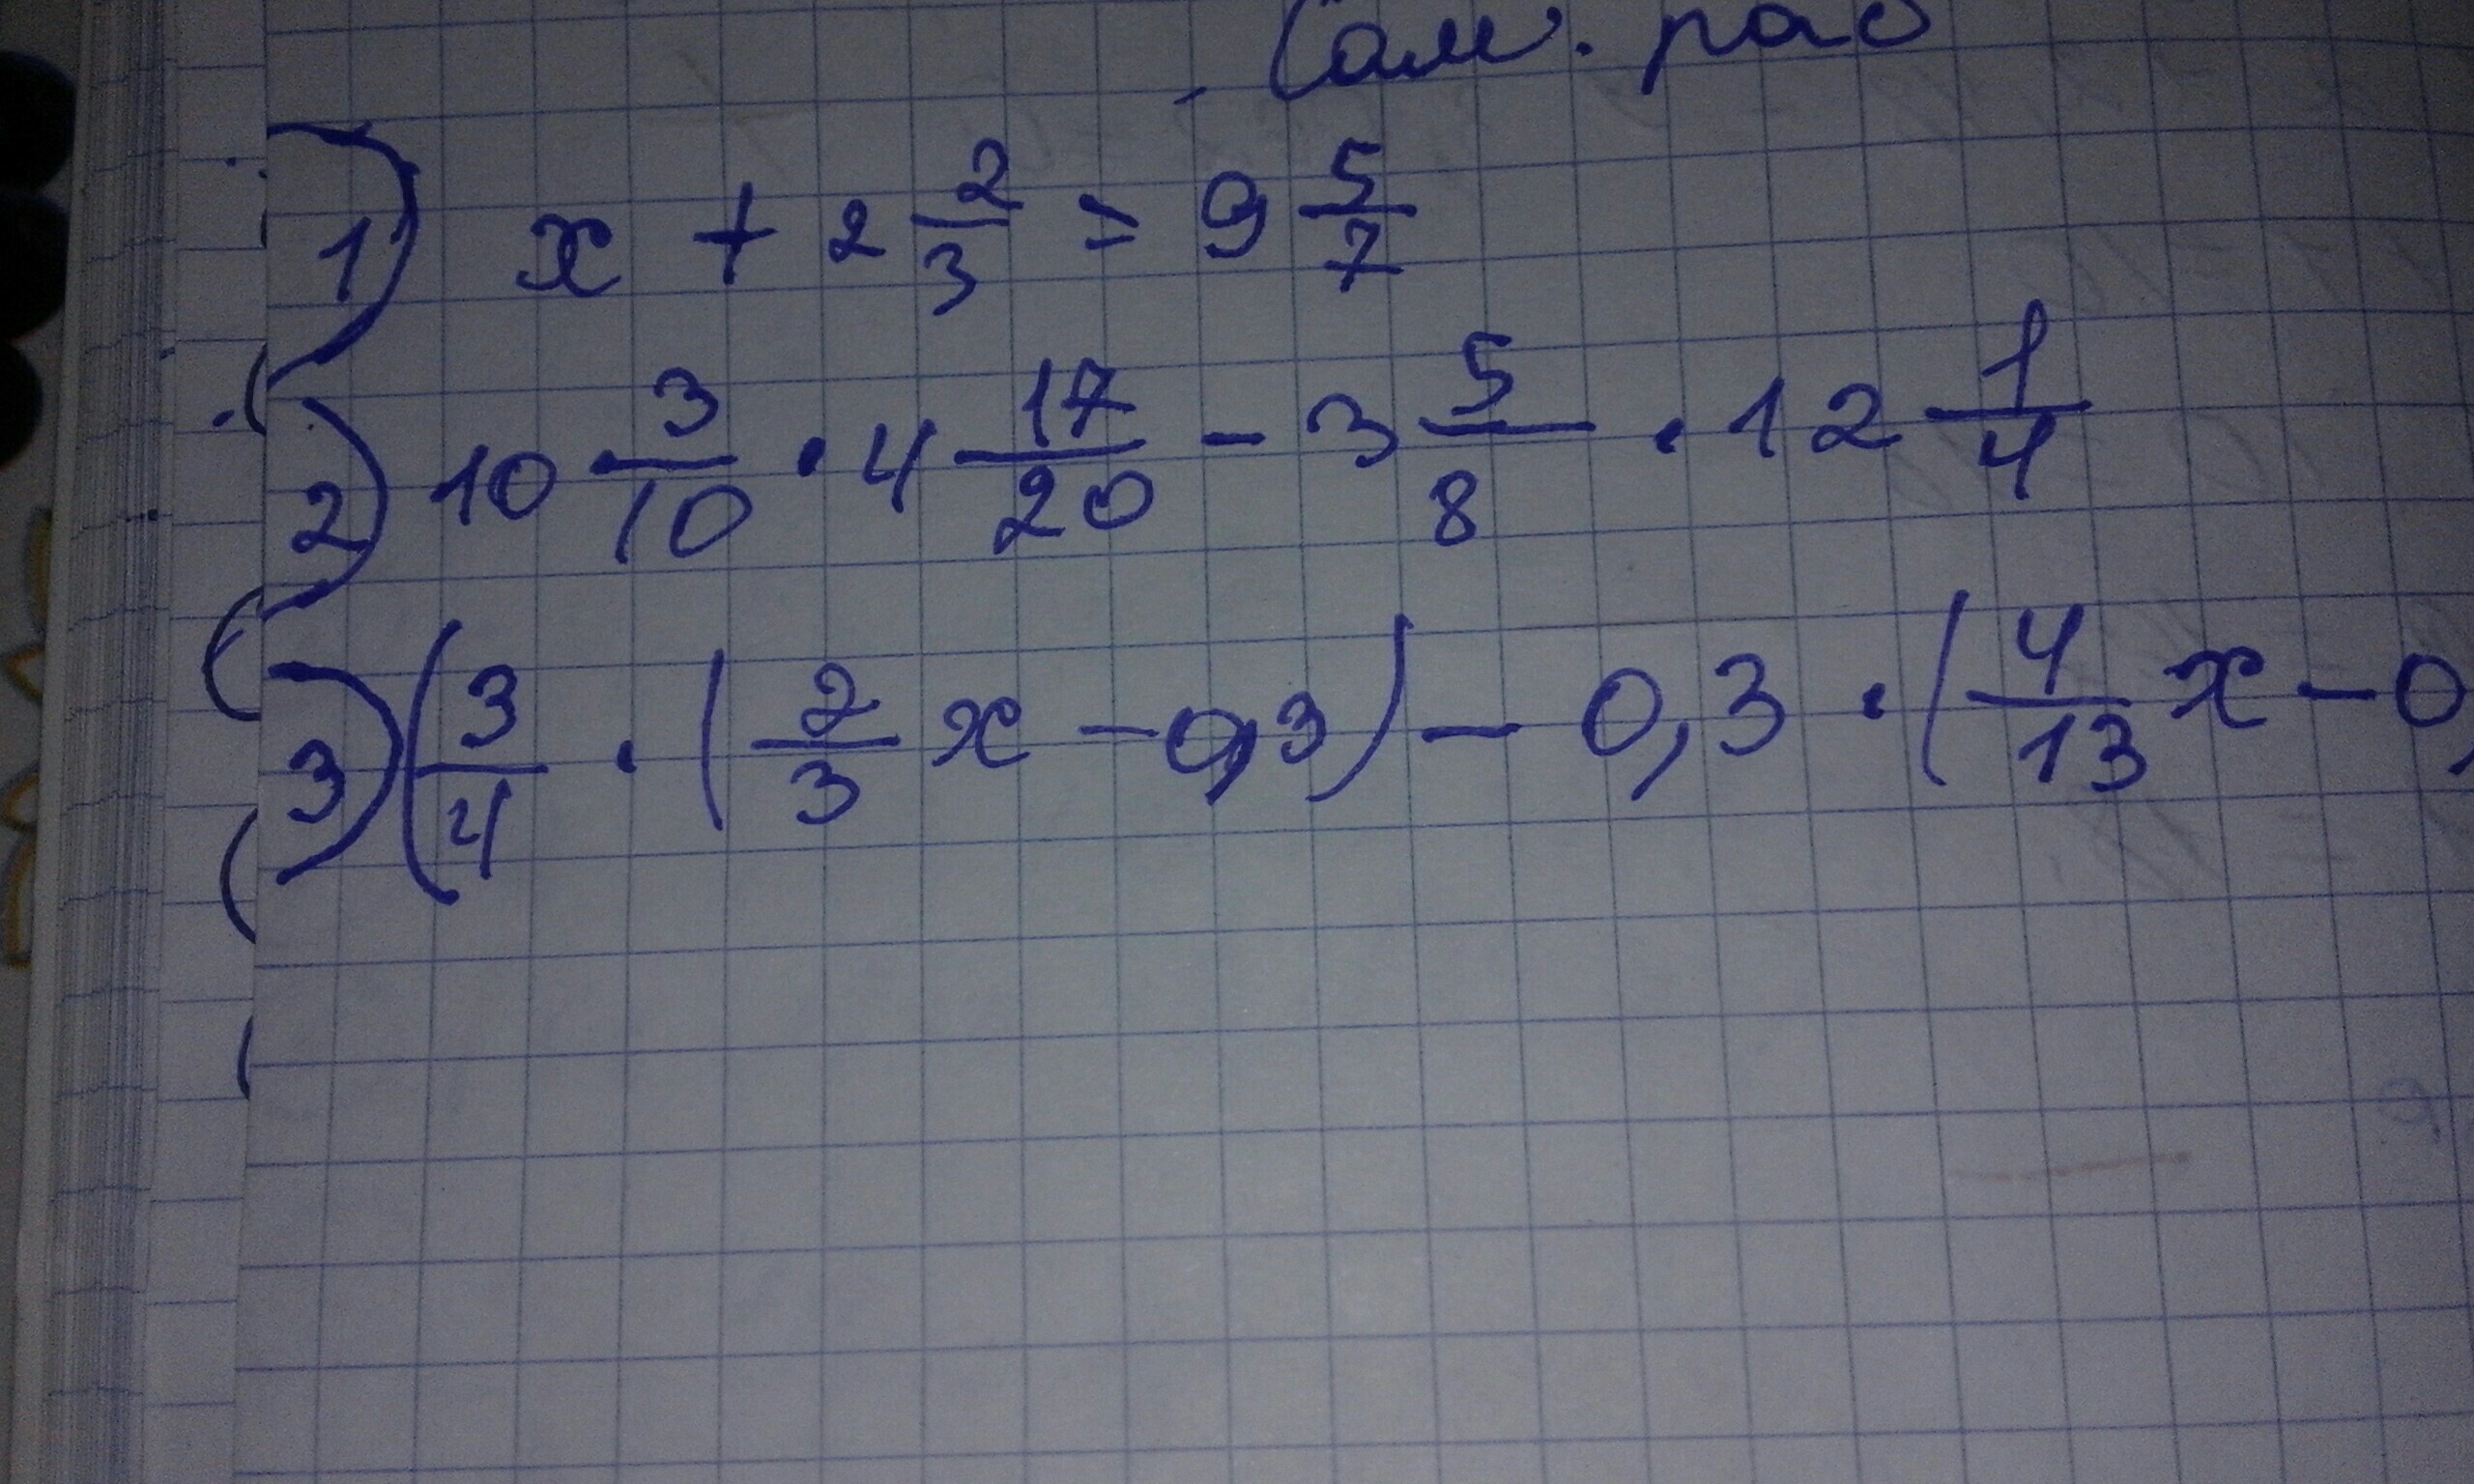 Сам. раб
1) x + 2 2/3 = 9 5/7
2) 10 3/10 · 4 17/20 - 3 5/8 · 12 1/4
3) (3/4 · (2/3 x - 0,3) - 0,3 · (4/13 x - 0,